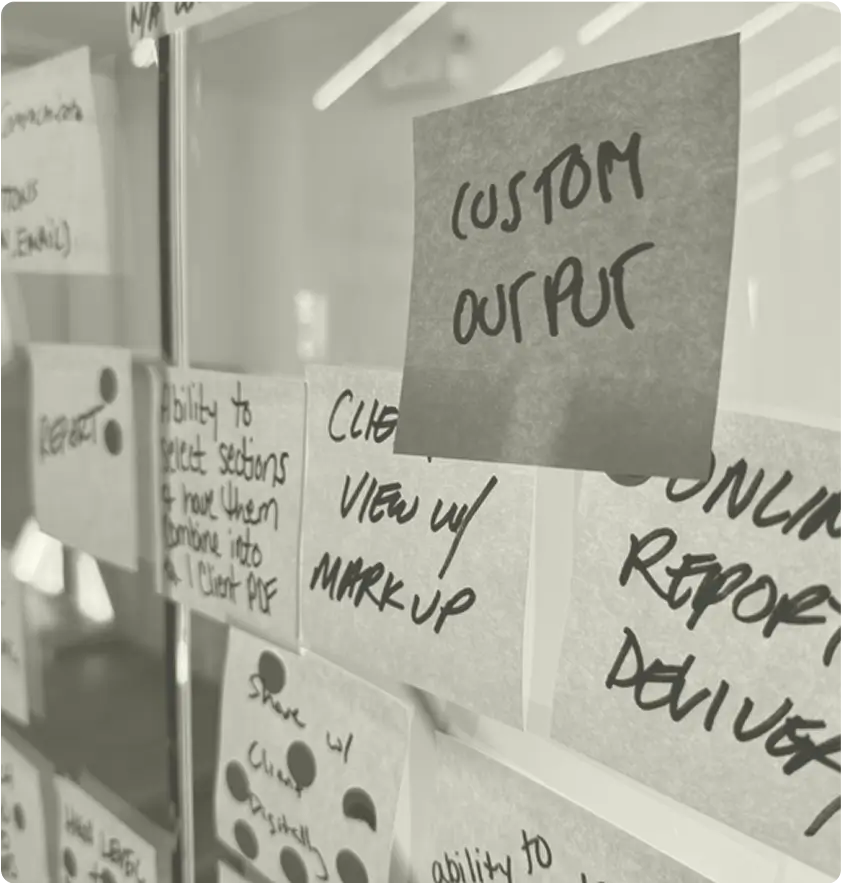 N/A
CUSTOM
OUTPUT
EMAIL)
REPORT
Ability to
select sections
& have them
combine into
1 Client PDF
CLIE
VIEW W/
MARKUP
ONLIN
REPORT
DELIVER
Share w/
Client
Digitally
HIGH LEVEL
ability to